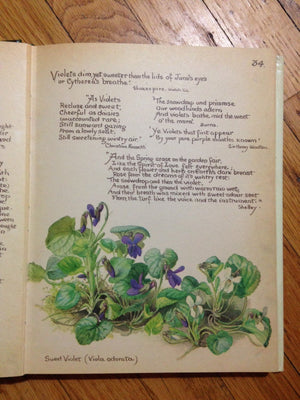 34
Violets dim, yet sweeter than the lids of Juno's eyes
or Cytherea's breathe."
Shakespere.
"As Violets
Recluse and sweet;
Cheerful as daisies
unaccounted rare;
Still sunward gazing
From a lowly seat;
Still sweetening wintry air."
Christina Rossetti
"The Snowdrop and primrose
Our woodlands adorn
And violets bathe, mid the weet
o' the morn"
Burns
"Ye Violets that first appear
By your pure purple mantles known"
Sir Henry Wootton.
"And the Spring arose on the garden fair,
Like the Spirit of Love felt everywhere;
And each flower and herb on Earth's dark breast
Rose from the dreams of its wintry rest:
The snowdrop and then the violet,
Arose from the ground with warm rain wet,
And their breath was mixed with sweet odour sent
From the turf, like the voice and the instrument."
Shelley
Sweet Violet (Viola odorata)